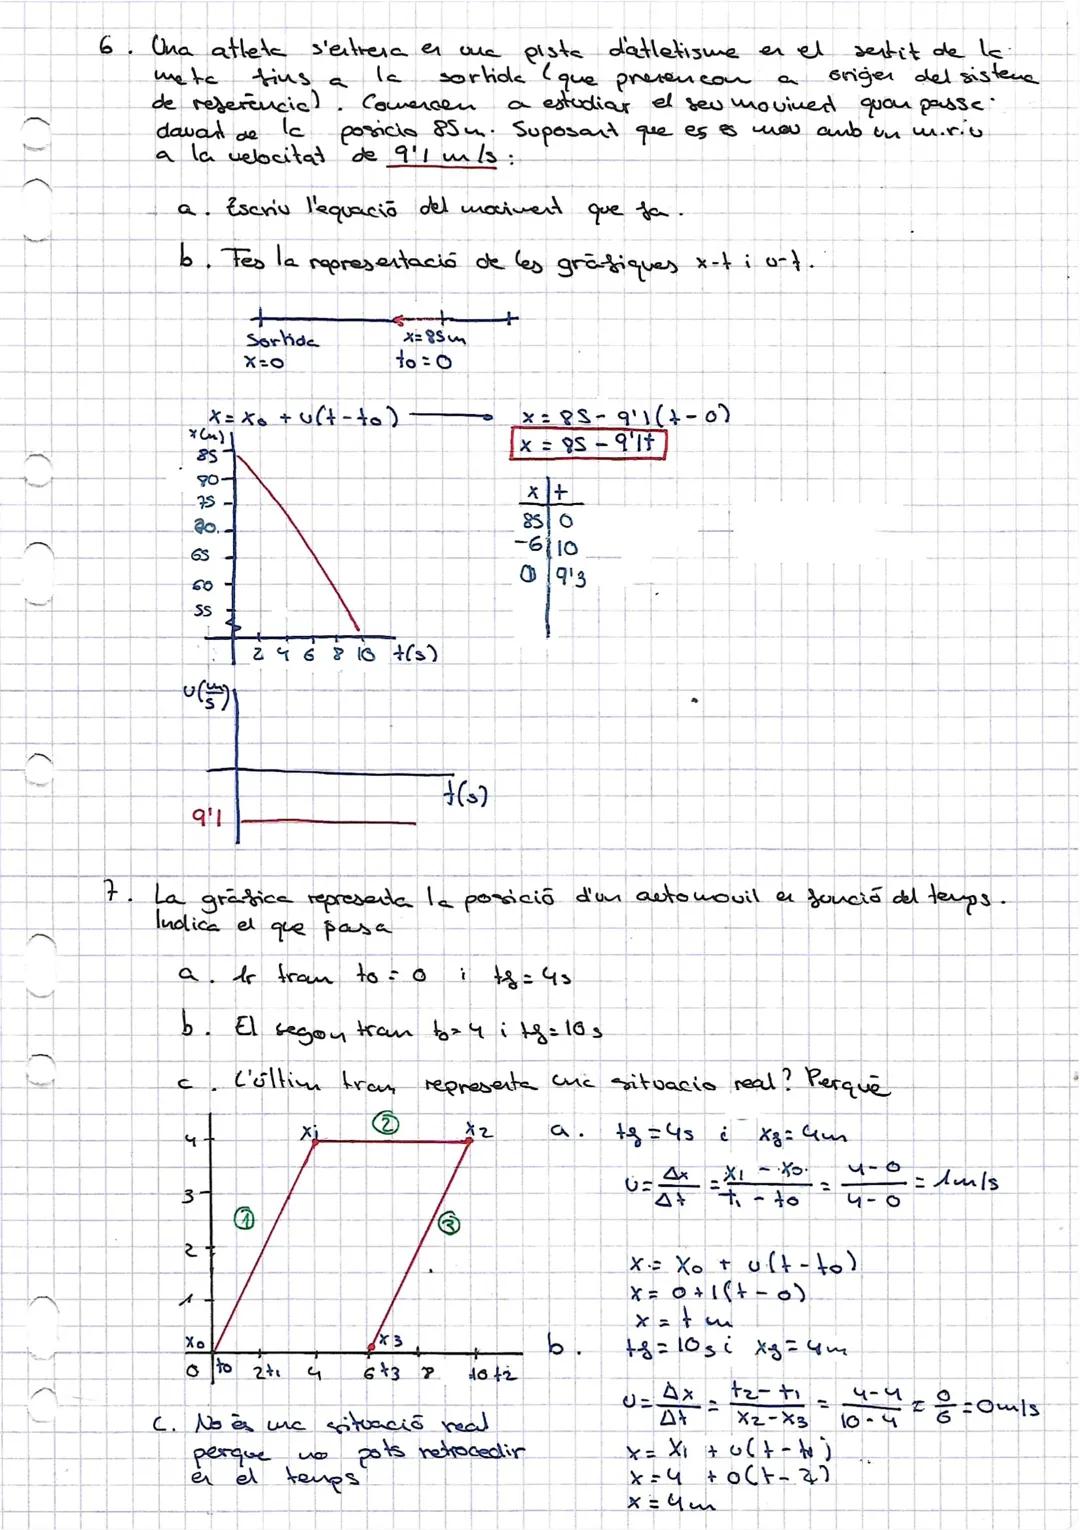 6. Una atleta s'entrena en una pista d'atletisme en el sentit de la
meta fins a la sortida (que prenencom a origen del sistema
de referència). Comencem a estudiar el seu moviment quan passa
davant de la posicio 85m. Suposant que es es mou amb un m.r.u
a la velocitat de 9'1 m/s:
a. Escriu l'equació del moviment que fa.
b. Fes la representació de les gràfiques x-t i v-t.
Sortida x=85m
x=0 t0=0
x = x0 + v(t-t0) x = 85 - 9'1(t-0)
x = 85 - 9'1t
x(m)
85
80
75
70
65
60
55
2 4 6 8 10 t(s)
x t
85 0
-6 10
0 9'3
v(m/s)
t(s)
9'1
7. La gràfica representa la posició d'un automovil en funció del temps.
Indica el que passa
a. 1r tram t0=0 i tf=4s
b. El segon tram t0=4 i tf=10s
c. L'últim tram representa una situacio real? Perquè
4 3 2 1
x1 2 x2
1 3
x0 x3
0 t0 2 t1 4 6 t3 8 10 t2
a. tf=4s i xf=4m
v = Δx/Δt = x1 - x0/t1 - t0 = 4-0/4-0 = 1m/s
x = x0 + v(t-t0)
x = 0+1(t-0)
x = t m
b. tf=10s i xf=4m
v = Δx/Δt = t2-t1/x2-x3 = 4-4/10-4 = 0/6 = 0m/s
x = x1 + v(t-t1)
x = 4 + 0(t-2)
x = 4m
c. No és una situació real
perque no pots retrocedir
en el temps